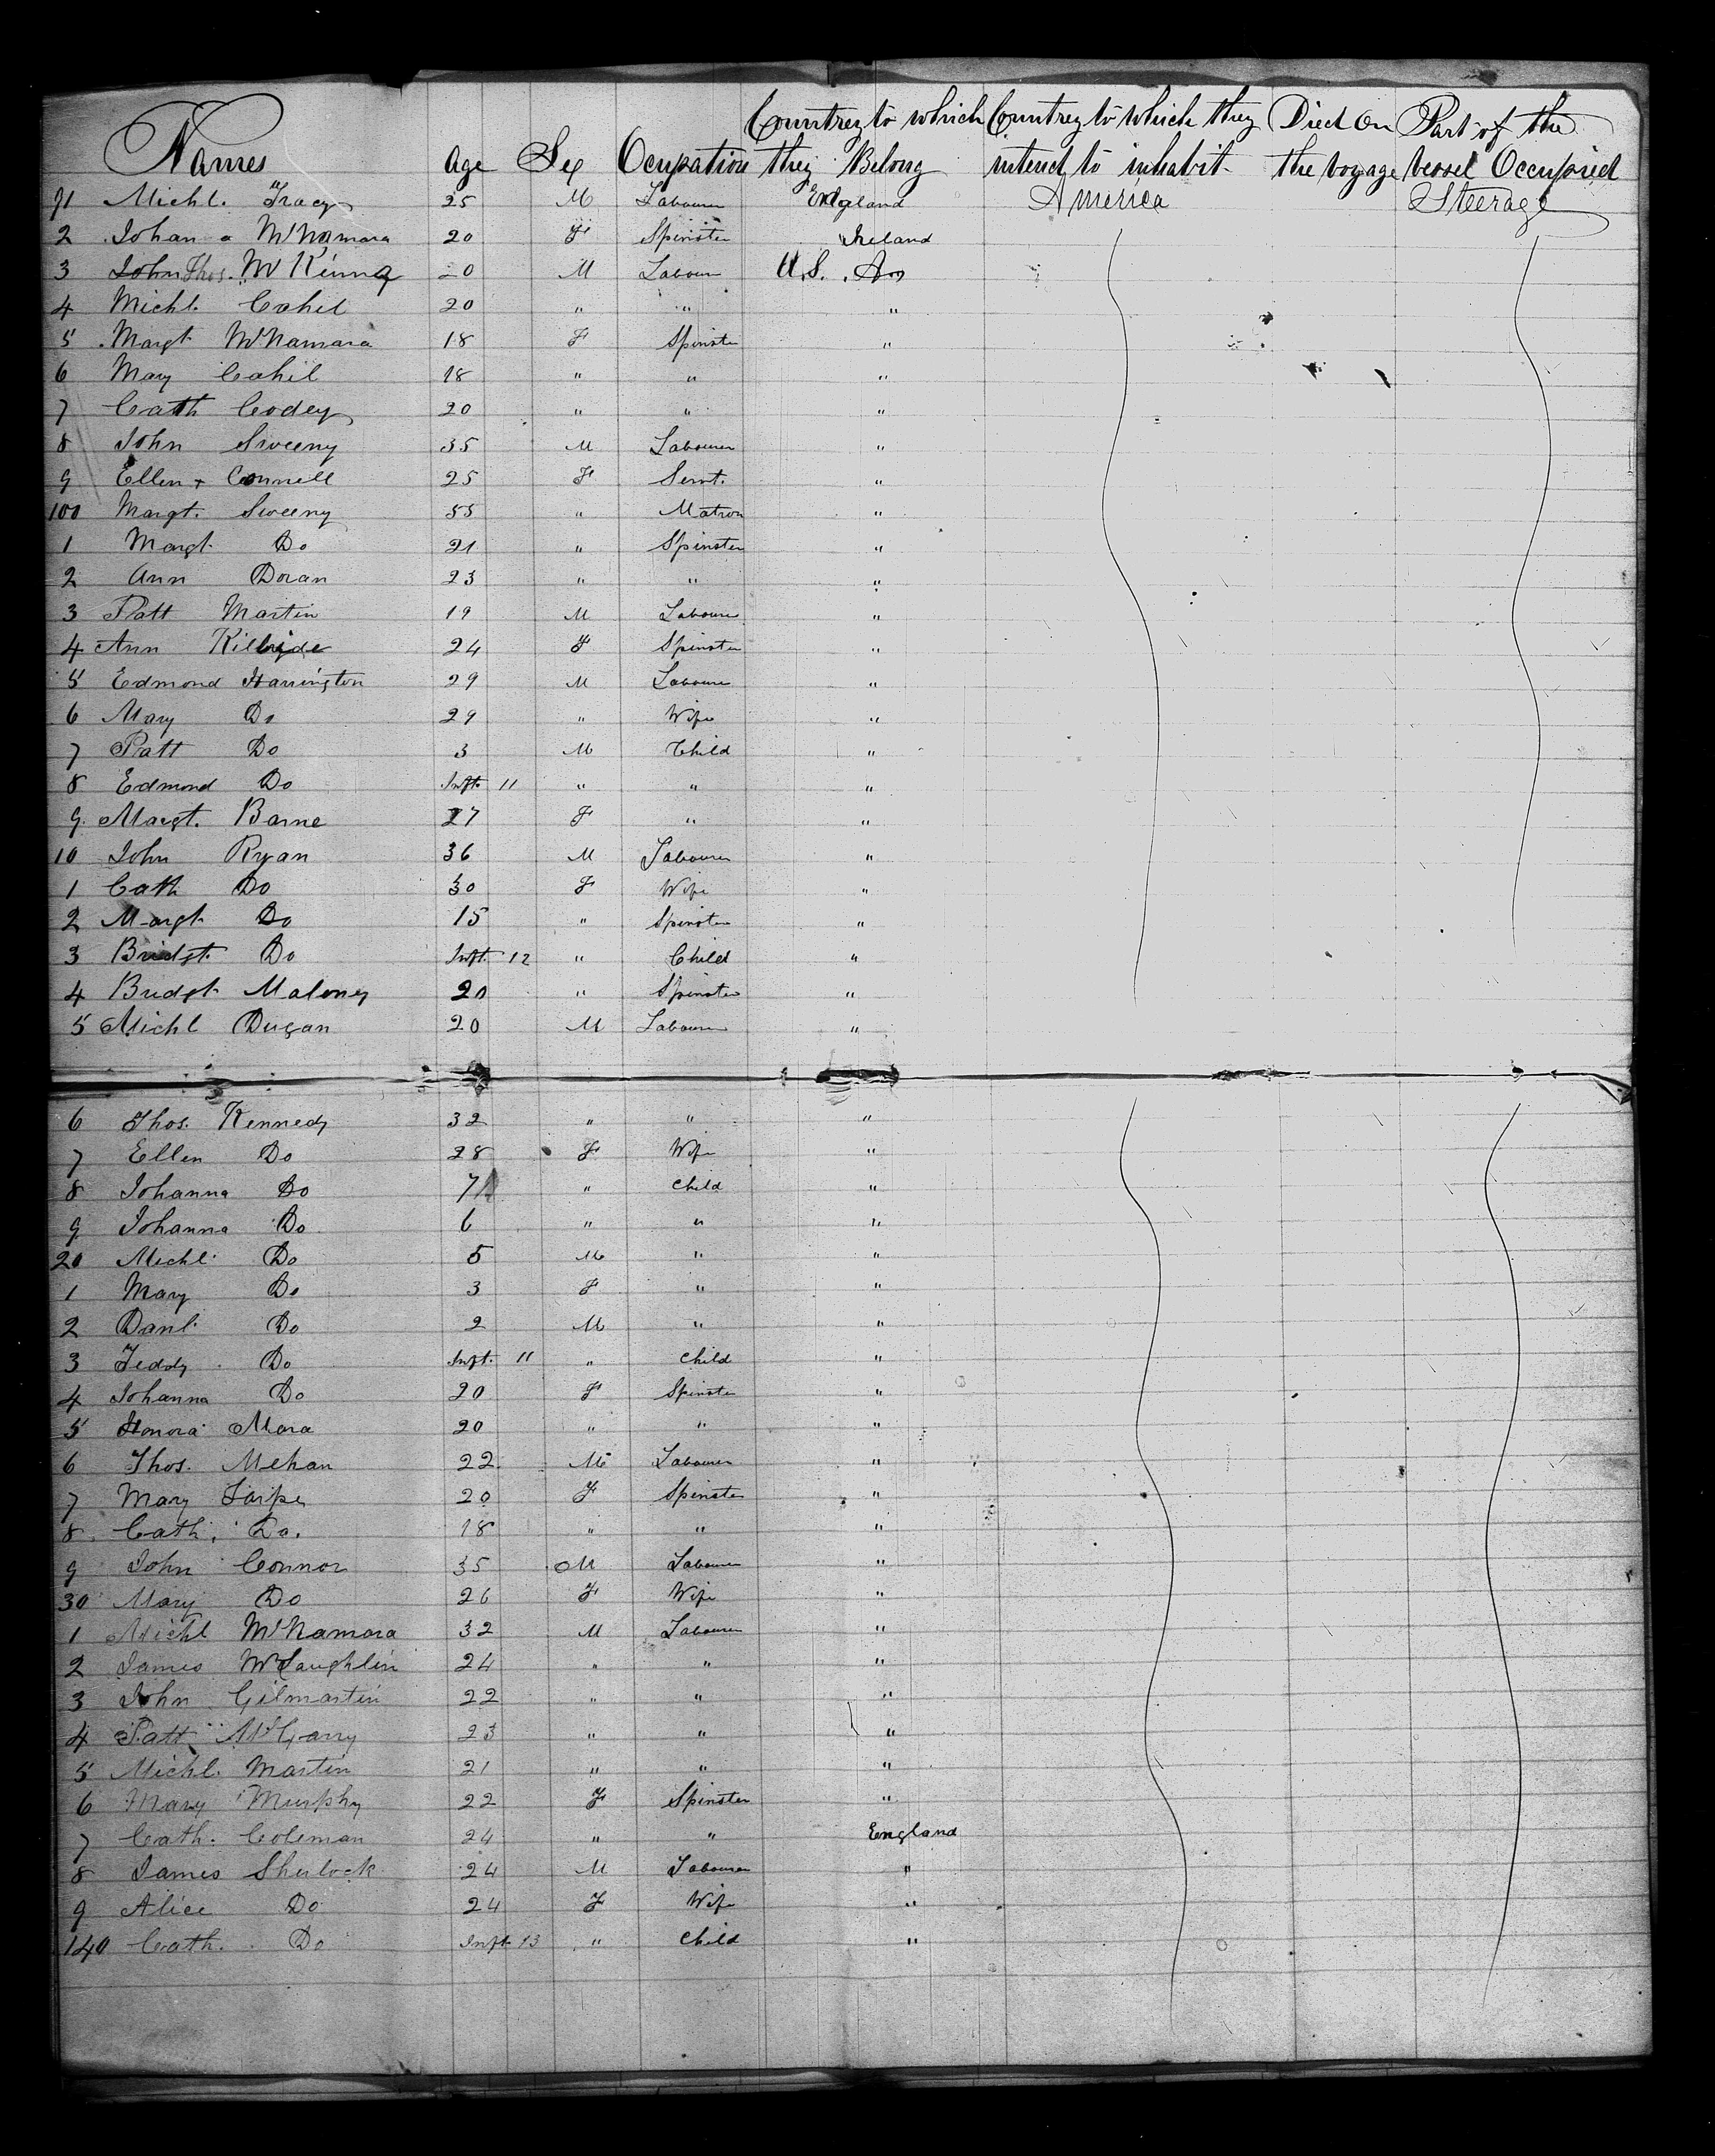 Names Age Sex Ocupation Countrey to which they Belong Countrey to which they intend to inhabit Died On the voyage Part of the vessel Occupied
91 Michl. Tracy 25 M Labourer England America Steerage
2 Johan a McNamara 20 F Spinster Ireland
3 John Thos. McKinna 20 M Labour U.S. Am
4 Michl. Cahil 20 " " "
5 Margt McNamara 18 F Spinster "
6 Mary Cahil 18 " " "
7 Cath Codey 20 " " "
8 John Sweeny 35 M Labourer "
9 Ellen + Connell 25 F Sernt. "
100 Margt. Sweeny 55 " Matron "
1 Margt Do 21 " Spinster "
2 Ann Doran 23 " " "
3 Patt Martin 19 M Labourer "
4 Ann Kilbride 24 F Spinster "
5 Edmond Harrington 29 M Labourer "
6 Mary Do 29 " Wife "
7 Patt Do 3 M Child "
8 Edmond Do Inft. 11 " " "
9 Margt. Barne 27 F " "
10 John Ryan 36 M Labourer "
1 Cath Do 30 F Wife "
2 Margt Do 15 " Spinster "
3 Bridgt. Do Inft. 12 " Child "
4 Bridgt Maloney 20 " Spinster "
5 Michl Dugan 20 M Labourer "
6 Thos. Kennedy 32 " " "
7 Ellen Do 28 F Wife "
8 Johanna Do 7 " Child "
9 Johanna Do 6 " " "
20 Michl. Do 5 M " "
1 Mary Do 3 F " "
2 Danl. Do 2 M " "
3 Teddy Do Inft. 11 " Child "
4 Johanna Do 20 F Spinster "
5 Honora Mara 20 " " "
6 Thos. Mehan 22 M Labourer "
7 Mary 20 F Spinster "
8 Cath. Do. 18 " " "
9 John Connor 35 M Labourer "
30 Mary Do 26 F Wife "
1 Michl McNamara 32 M Labourer "
2 James McLaughlin 24 " " "
3 John Gilmartin 22 " " "
4 Patt McGarry 23 " " "
5 Michl. Martin 21 " " "
6 Mary Murphy 22 F Spinster "
7 Cath. Coleman 24 " " England
8 James Sherlock 24 M Labourer "
9 Alice Do 24 F Wife "
140 Cath. Do Inft 13 " Child "